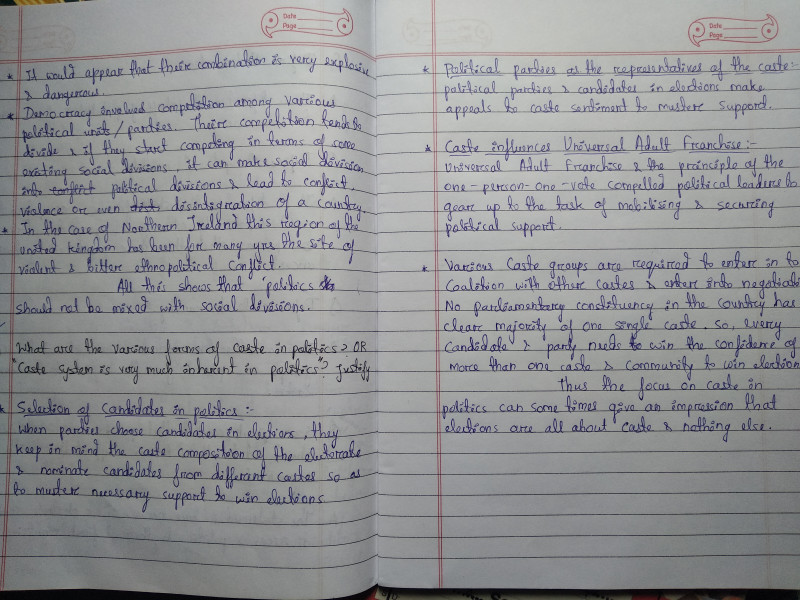 Date
Page
* It would appear that their combination is very explosive
& dangerous.
* Democracy involved competition among various
political units/parties. Their competition tends to
divide & if they start competing in terms of some
existing social divisions, it can make social division
into conflict political divisions & lead to conflict,
violence or even disintegration of a country.
* In the case of Northern Ireland this region of the
united kingdom has been for many yrs the site of
violent & bitter ethnopolitical conflict.
All this shows that politics
should not be mixed with social divisions.
What are the various forms of caste in politics? OR
"Caste system is very much inherent in politics"? Justify
* Selection of Candidates in politics :-
When parties choose candidates in elections, they
keep in mind the caste composition of the electorate
& nominate candidates from different castes so as
to muster necessary support to win elections
Date
Page
* Political parties as the representatives of the caste:-
political parties & candidates in elections make
appeals to caste sentiment to muster support.
* Caste influences Universal Adult Franchise:-
Universal Adult Franchise & the principle of the
one-person-one-vote compelled political leaders to
gear up to the task of mobilising & securing
political support.
* Various Caste groups are required to enter in to
Coalition with other castes & enter into negotiati
No parliamentary constituency in the country has
clear majority of one single caste. so, every
Candidate & party needs to win the confidence of
more than one caste & community to win election
Thus the focus on caste in
politics can some times give an impression that
elections are all about caste & nothing else.